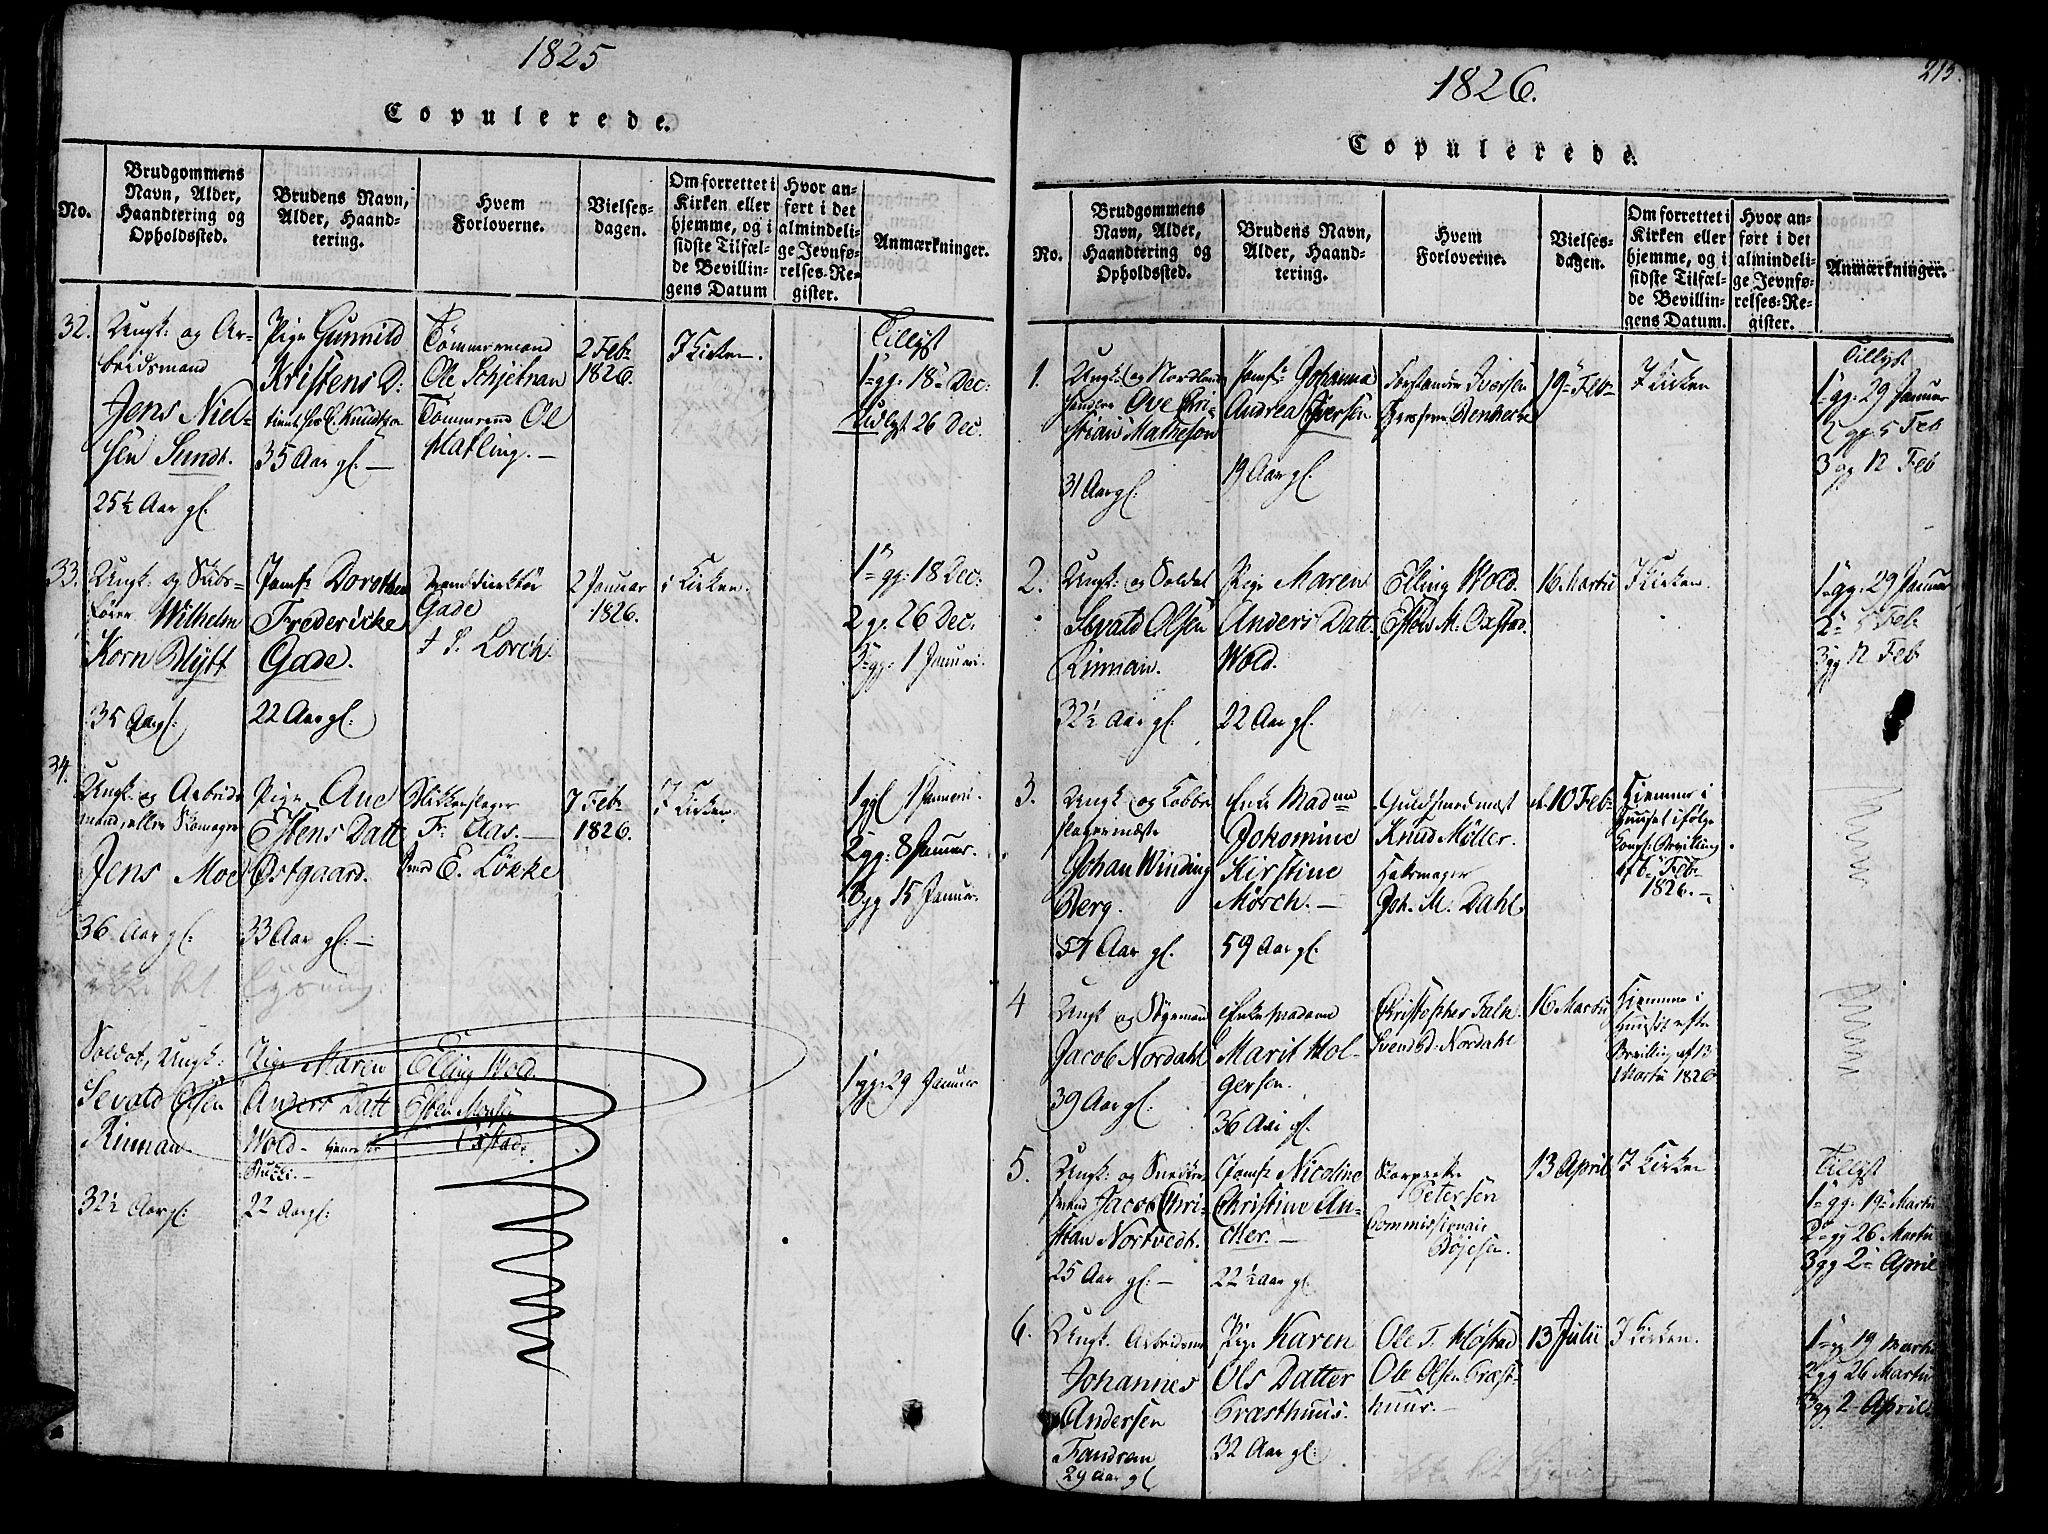 1825
Copulerede.
No.
Brudgommens
Navn, Alder,
Haandtering og
Opholdssted.
Brudens Navn,
Alder, Haand-
tering.
Hvem
Forloverne.
Vielses-
dagen.
Om forrettet i
Kirken eller
hjemme, og i
sidste Tilfæl-
de Bevillin-
gens Datum
Hvor an-
ført i det
almindeli-
ge Jevnfø-
relses-Re-
gister.
Anmærkninger.
32.
Ungk: og Ar-
beidsmand
Jens Niel-
sen Sundt.
25½ Aar gl.
Pige Gunnild
Kristens D:
35 Aar gl. —
Tømmermand
Ole Schjetnan
Tømmermd Ole
Matling. —
2 Feb:
1826.
I Kirken.
Tillyst
1 gg: 18 Dec:
Udlyst 26 Dec.
33.
Ungk: og
Wilhelm
Korn Blytt
35 Aar gl:
Jomfr Dorothea
Fredericke
Gade.
22 Aar gl:
Gade
Lorch.
2 Januar
1826.
i Kirken.
1 gg: 18 Dec:
2 g: 26 Dec:
3 gg: 1 Januari.
34.
Ungk: og Arbeids
mand, eller Skomager
Jens Moe
36 Aar gl:
Pige Ane
Estens Datt
Østgaard.
33 Aar gl: —
Blikkenslager
Fr: Aas. —
E. Løkke
7 Feb:
1826.
I Kirken.
1 gg 1 Januari.
2 gg: 8 Januar.
3 gg 15 Januar.
Soldat, Ungk:
Sevald Olsen
Rinnan.
32½ Aar gl:
Pige Maren
Anders Datt
Wold
22 Aar gl:
Elling Wold
Esten
Oxstad.
1 gg: 29 Januar
1826.
215.
Copulerede.
No.
Brudgommens
Navn, Alder,
Haandtering og
Opholdssted.
Brudens Navn,
Alder, Haand-
tering.
Hvem
Forloverne.
Vielses-
dagen.
Om forrettet i
Kirken eller
hjemme, og i
sidste Tilfæl-
de Bevillin-
gens Datum.
Hvor an-
ført i det
almindeli-
ge Jevnfø-
relses-Re-
gister.
Anmærkninger.
1.
Ungk: og Nordlands
Ove Chri-
stian Matheson
31 Aar gl.
Jomfr Johanna
Andrea Iversen
19 Aar gl.
Forstander Iversen
19 Feb:
I Kirken
Tillyst
1 gg: 29 Januar
2 gg 5 Feb
3 gg 12 Feb
2.
Ungk: og Soldat
Sevald Olsen
Rinnan.
32½ Aar gl.
Pige Maren
Anders Datt.
Wold.
22 Aar gl.
Elling Wold.
Esten M. Oxstad.
16 Martii
I Kirken.
1 gg: 29 Januar
2 5 Feb:
3 gg 12 Feb
3.
Ungk og Kobber
slagermæstr
Johan Winding
Berg.
54 Aar gl.
Enke Madme
Jokomine
Kirstine
Mörch. —
59 Aar gl.
Guldsmedmest
Knud Møller.
Joh. M. Dahl.
d. 10 Feb:
Hjemme i
Huuset ifølge
Bevilling
af 6 Feb:
1826. —
4
Ungk og
Jacob Nordahl
39 Aar gl.
Enkemadame
Marit Hol-
gersen.
36 Aar gl.
Christopher Falk
Svend Nordahl
16 Martii
Hjemme i
Huuset efter
Bevilling af 13
Martii 1826
5.
Ungk: og Snedker
svend Jacob Chri-
stian Nortvedt.
25 Aar gl. —
Jomfr Nicoline
Christine An-
cher. —
22½ Aar gl.
Petersen
Commissionair
Böjesen.
13 April
I Kirken
Tillyst
1 gg: 19 Martii
2 gg 26 Martii
3 gg 2 April
6.
Ungk. Arbeidsm
Johannes
Andersen
Fandrem
29 Aar gl
Pige Karen
Ols Datter
Græsthuus.
32 Aar gl:
Ole T. Møstad
Ole Olsen Græst-
huus. —
13 Julii
I Kirken.
1 gg 19 Martii
2 gg 26 Martii
3 gg 2 April